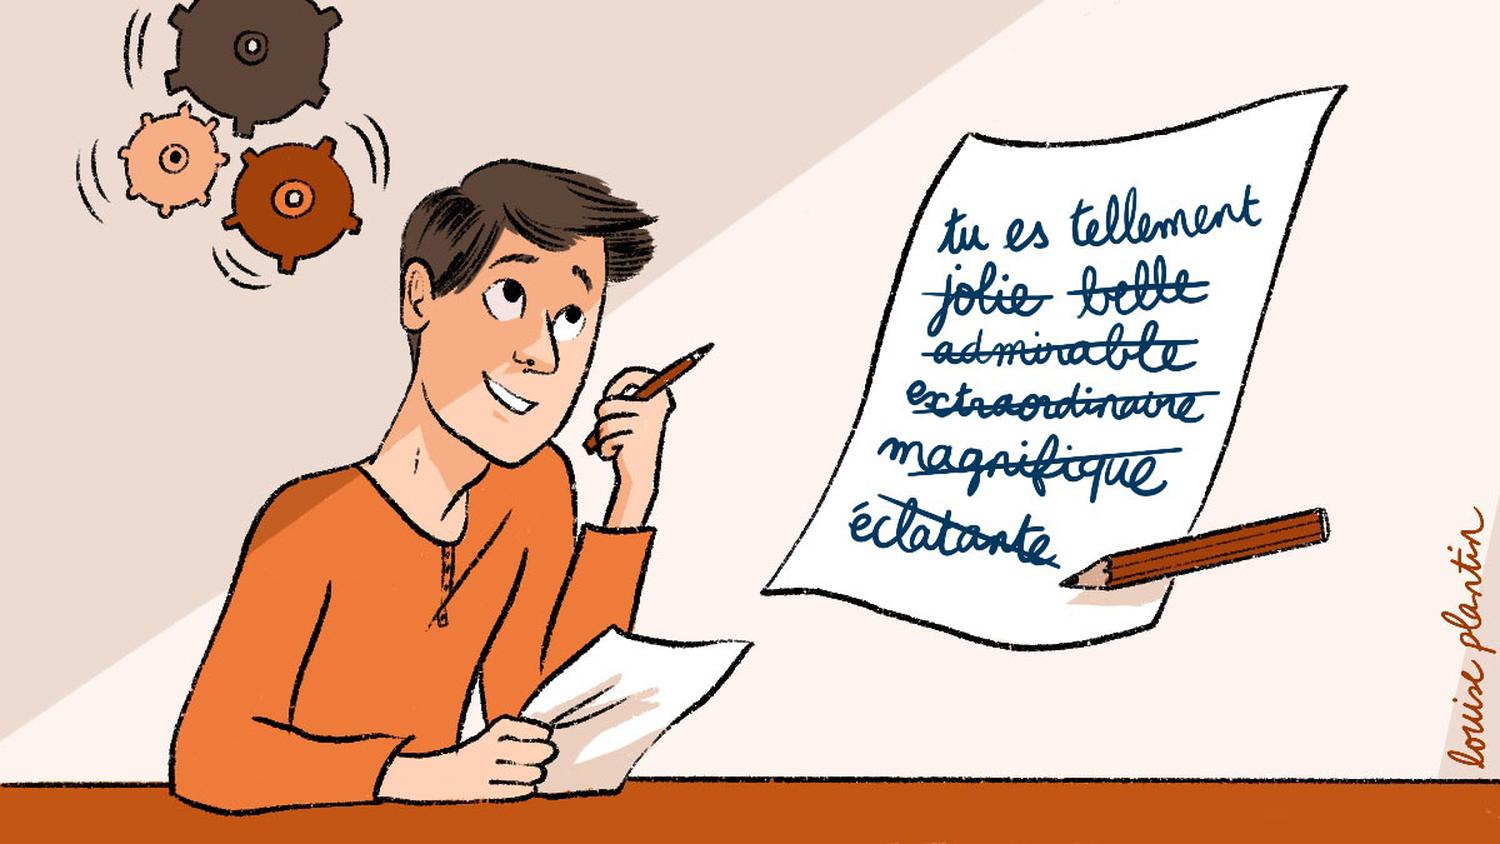 tu es tellement
jolie belle
admirable
extraordinaire
magnifique
éclatante
louise plantin